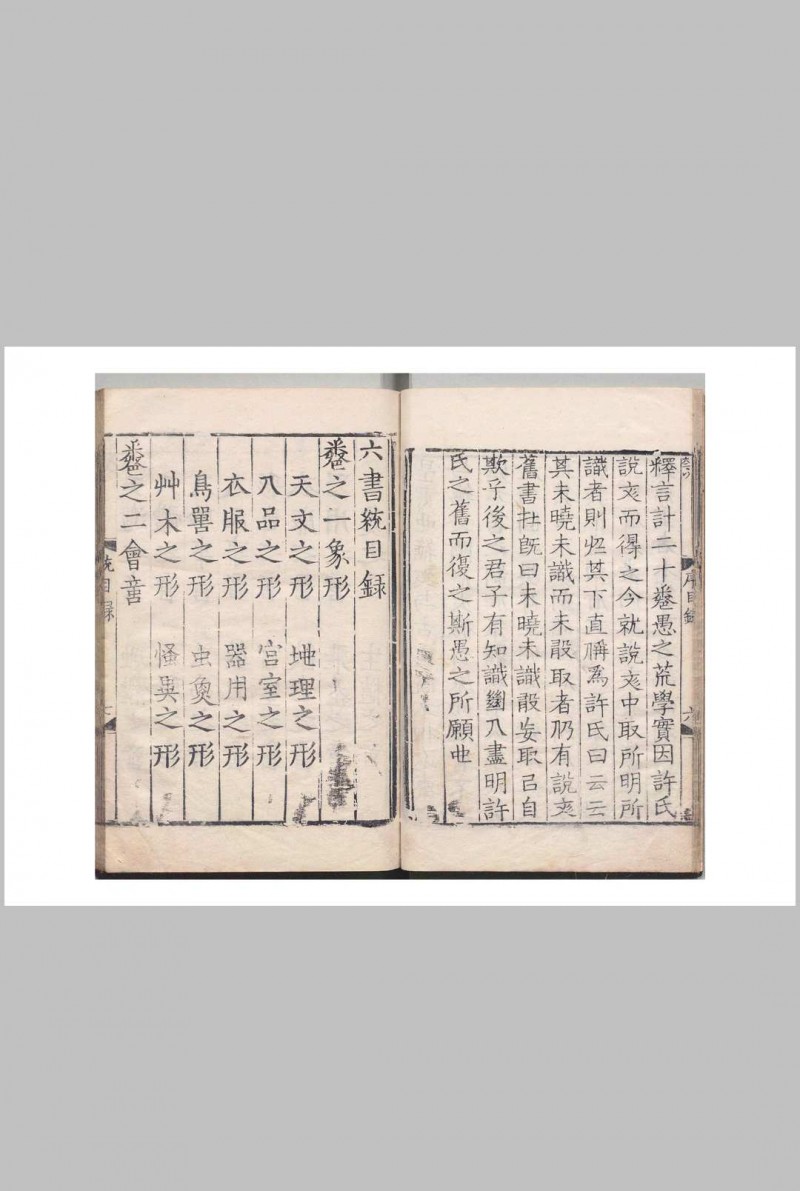 釋言計二十卷愚之荒學實因許氏
說文而得之今就說文中取所明所
識者則於其下直稱爲許氏曰云云
其未曉未識而未敢取者仍有說文
舊書在旣曰未曉未識敢妄取己自
欺乎後之君子有知識幽人盡明許
氏之舊而復之斯愚之所願也
序目錄
六
六書統目錄
卷之一象形
天文之形 地理之形
人品之形 宮室之形
衣服之形 器用之形
鳥獸之形 虫魚之形
艸木之形 怪異之形
卷之二會意
統目錄
七